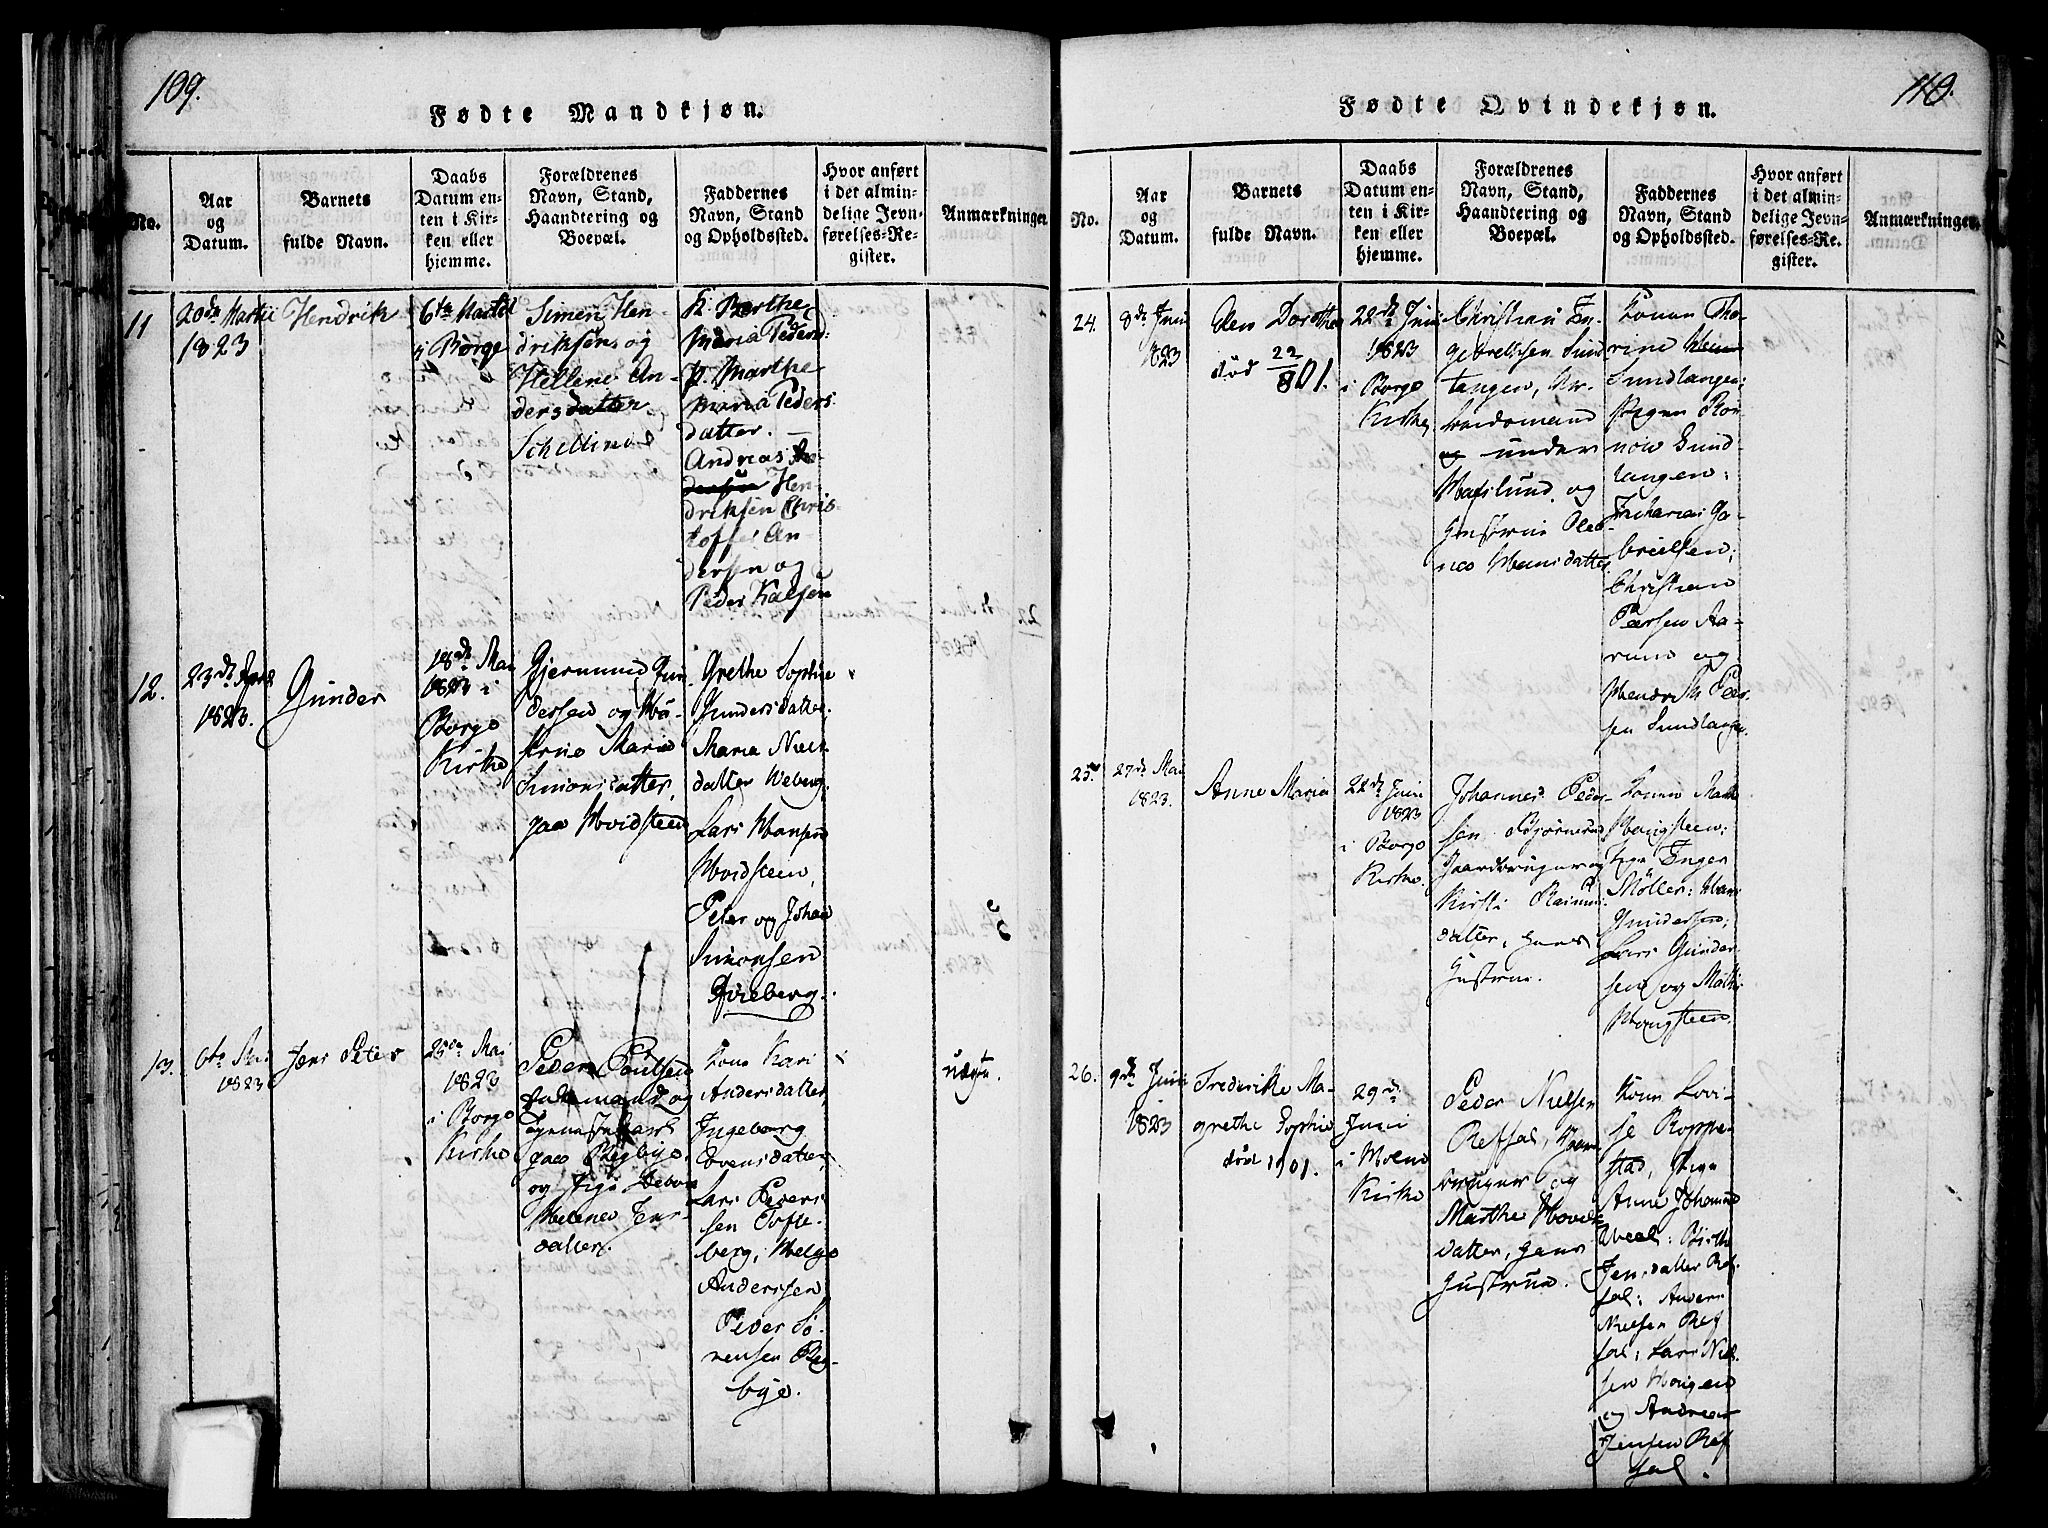 109.
Fødte Mandkjøn.
No.
Aar
og
Datum.
Barnets
fulde Navn.
Daabs
Datum en-
ten i Kir-
ken eller
hjemme.
Forældrenes
Navn, Stand,
Haandtering og
Boepæl.
Faddernes
Navn, Stand
og Opholdssted.
Hvor anført
i det almin-
delige Jevn-
førelses-Re-
gister.
Anmærkninger.
11
20de Martii
1823
Hendrik
6te Martii
i Borge
Simen Hen-
driksens og
Hellene An-
dersdatter
K. Berthe
Maria Peders:
p. Marthe
Maria Peders
datter. —
Andreas
Hen-
driksen Chris-
toffer An-
dersen og
Peder
12.
23de April
1823.
Gunder
18de Mai
1823 i
Borge
Kirke
Gjermund Gun-
dersen og
Marie
Simonsdatter,
paa Hvidsteen
Grethe Sophie
Gundersdatter,
Maria Niels
datter Weberg,
Lars Hansen
Hvidsteen,
Peter og Johan
Simonsen
13.
6te Mai
1823
Jens Peter
25de Mai
1823
i Borge
Kirke
Peder Poulsen
og
paa Regbye,
og Pige
Helene Jens-
datter.
Kone Kari
Andersdatter,
Ingeborg
Evensdatter,
Lars Peders
sen Tofte-
berg, Helge
Anderssen,
Peder Sö-
rensen Reg-
bye.
uægte.
110.
Fødte Qvindekjøn.
No.
Aar
og
Datum.
Barnets
fulde Navn.
Daabs
Datum en-
ten i Kir-
ken eller
hjemme.
Forældrenes
Navn, Stand,
Haandtering og
Boepæl.
Faddernes
Navn, Stand
og Opholdssted.
Hvor anført
i det almin-
delige Jevn-
førelses-Re-
gister.
Anmærkninger.
24.
8de Juni
1823
Elen Dorothea
död 22/8 01.
22de Juni
1823
i Borge
Kirke
Christian En-
gebretsen Sund
tangen, Ar-
beidsmand
under
Hafslund, og
Hansdatter
Konen Tho-
rine
Sundtangen;
Pigen
Sund-
tangen;
Zacharias Ga-
brielsen;
Christian
Peersen Aa-
rum og
Hendrik Peer
sen Sundtangen.
25.
27de Mai
1823.
Anne Maria
22de Juni
1823
i Borge
Kirke.
Johannes Peder-
sen Bjørnerud
Gaardbruger og
Kirsti Rasmus
datter, hans
Hustrue.
Konen
Haugsteen;
Pige Inger
Møller; Hans
Gundersen;
Lars Gunder
sen og
Haugsteen.
26.
9de Juni
1823
Frederikke Ma-
grethe Sophie
död 1901.
29de
Juni
i
Kirke
Peder Nielsen
Refsal, Gaard
bruger og
Marthe Hovels
datter, hans
Hustrue.
Konen Lovi-
se Roppe
stad, Pige
Anne Johanne
Weel; Birthe
Jensdatter Ref
sal; Anders
Nielsen Ref
sal; Lars Niel
sen Haugen
og Andreas
Jensen Ref
sal.